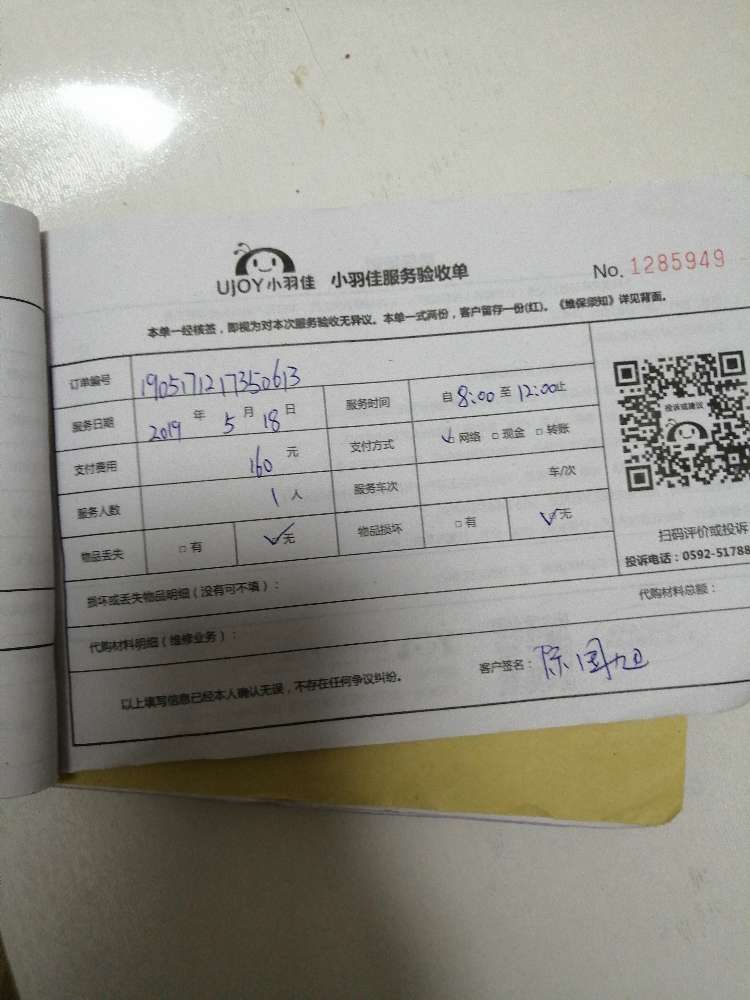 UJOY小羽佳 小羽佳服务验收单 No. 1285949
本单一经核签，即视为对本次服务验收无异议。本单一式两份，客户留存一份(红)。《维保须知》详见背面。
订单编号 1905171217350613
服务日期 2019 年 5 月 18 日 服务时间 自 8:00 至 12:00止
投诉或建议
支付费用 160 元 支付方式 ✓网络 □现金 □转账
服务人数 1 人 服务车次 车/次
物品丢失 □有 ✓无 物品损坏 □有 ✓无
扫码评价或投诉
投诉电话：0592-51788
损坏或丢失物品明细（没有可不填）：
代购材料明细（维修业务）： 代购材料总额：
以上填写信息已经本人确认无误，不存在任何争议纠纷。 客户签名：陈国旭